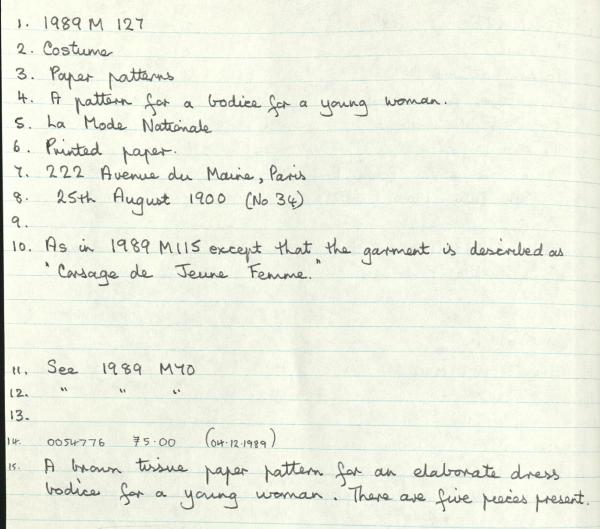 1. 1989 M 127
2. Costume
3. Paper patterns
4. A pattern for a bodice for a young woman.
5. La Mode Nationale
6. Printed paper.
7. 222 Avenue du Maine, Paris
8. 25th August 1900 (No 34)
9.
10. As in 1989 M115 except that the garment is described as
"Corsage de Jeune Femme."
11. See 1989 M70
12. " " "
13.
14. 0054776 75.00 (04.12.1989)
15. A brown tissue paper pattern for an elaborate dress
bodice for a young woman. There are five pieces present.